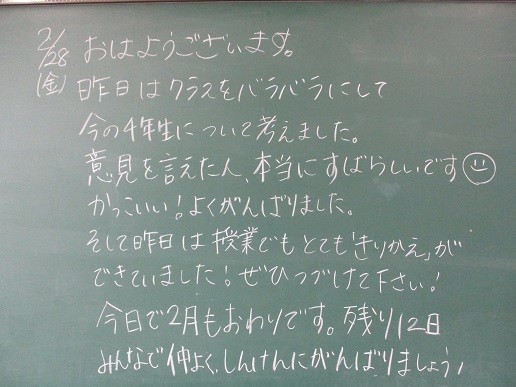 2/28 おはようございます。
(金) 昨日はクラスをバラバラにして
今の4年生について考えました。
意見を言えた人、本当にすばらしいです
かっこいい！よくがんばりました。
そして昨日は授業でもとても「きりかえ」が
できていました！ぜひつづけて下さい！
今日で2月もおわりです。残り12日
みんなで仲よく、しんけんにがんばりましょう！